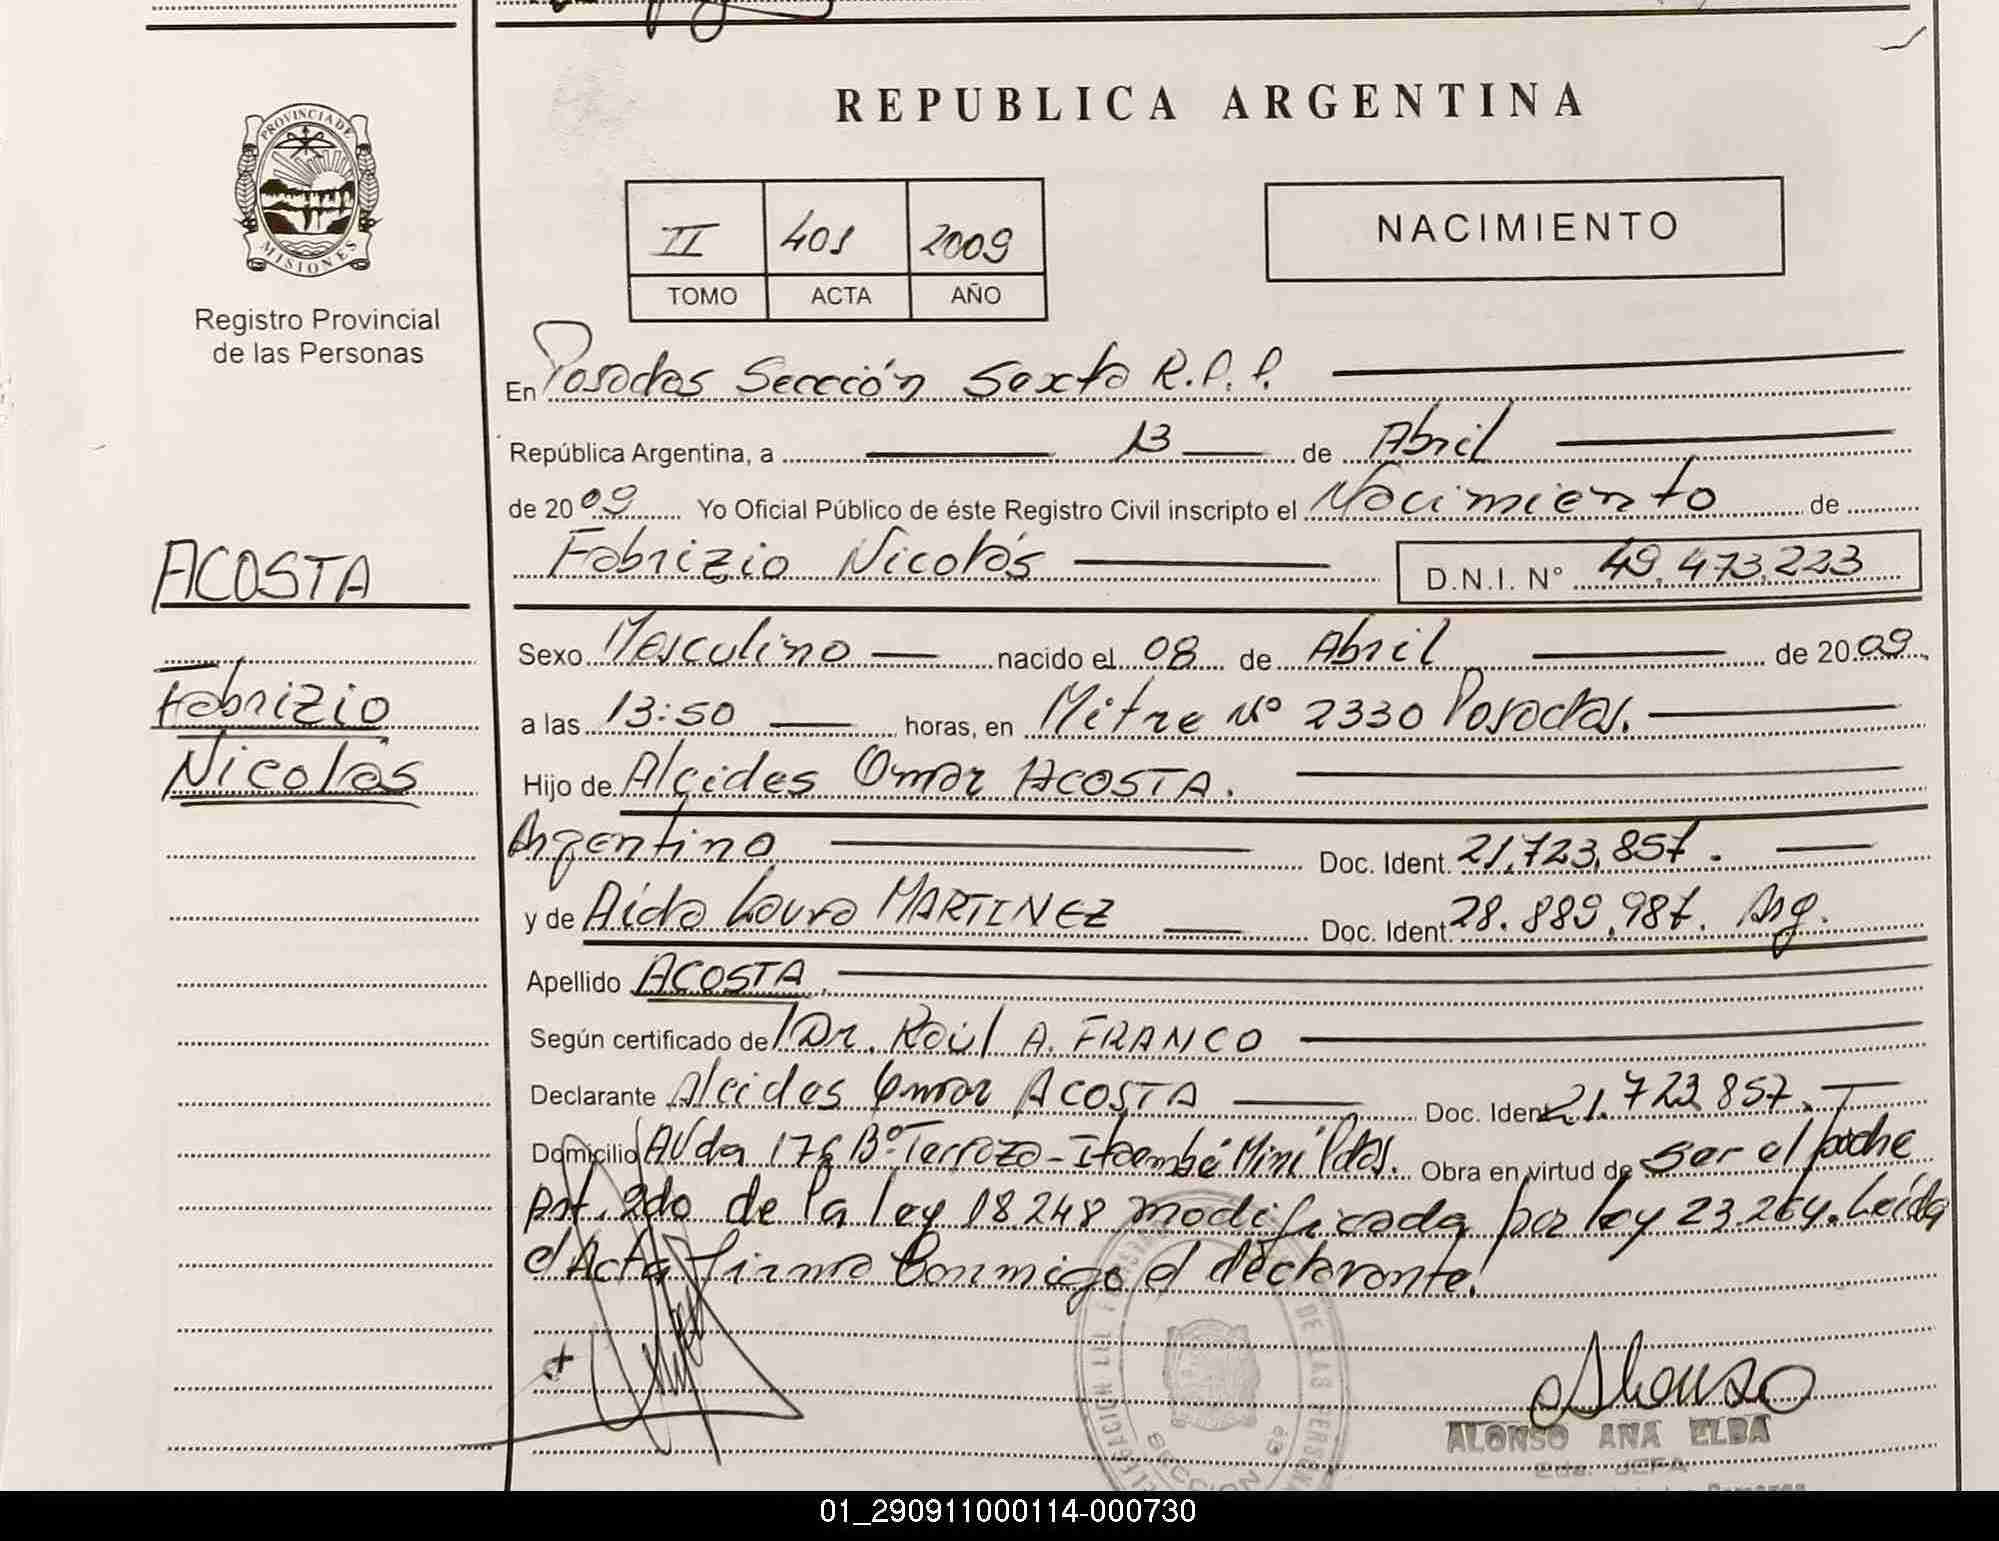 REPUBLICA ARGENTINA
PROVINCIA DE
MISIONES
Registro Provincial
de las Personas
II 401 2009
TOMO ACTA AÑO
NACIMIENTO
En Posadas Seccción Sexta R.P.P.
República Argentina, a 13 de Abril
de 2009 Yo Oficial Público de éste Registro Civil inscripto el Nacimiento de
Fabrizio Nicolás D.N.I. N° 49.473.223
ACOSTA
Fabrizio
Nicolás
Sexo Masculino nacido el 08 de Abril de 2009
a las 13:50 horas, en Mitre Nº 2330 Posadas.
Hijo de Alcides Omar ACOSTA.
Argentino Doc. Ident. 21.723.857.
y de Aida Laura MARTINEZ Doc. Ident. 28.889.987. Arg.
Apellido ACOSTA.
Según certificado de Dr. Raúl A. FRANCO
Declarante Alcides Omar ACOSTA Doc. Iden 21.723.857.
Domicilio AVda 176 Bº Terrazo - Itaembé Miní Pdas. Obra en virtud de ser el padre
Art. 2do de la ley 18.248 modificada por ley 23.264. Leída
el Acta firma Conmigo el declarante.
Alonso
ALONSO ANA ELBA
JEFA
DE LAS PERSONAS
SECCION
01_290911000114-000730